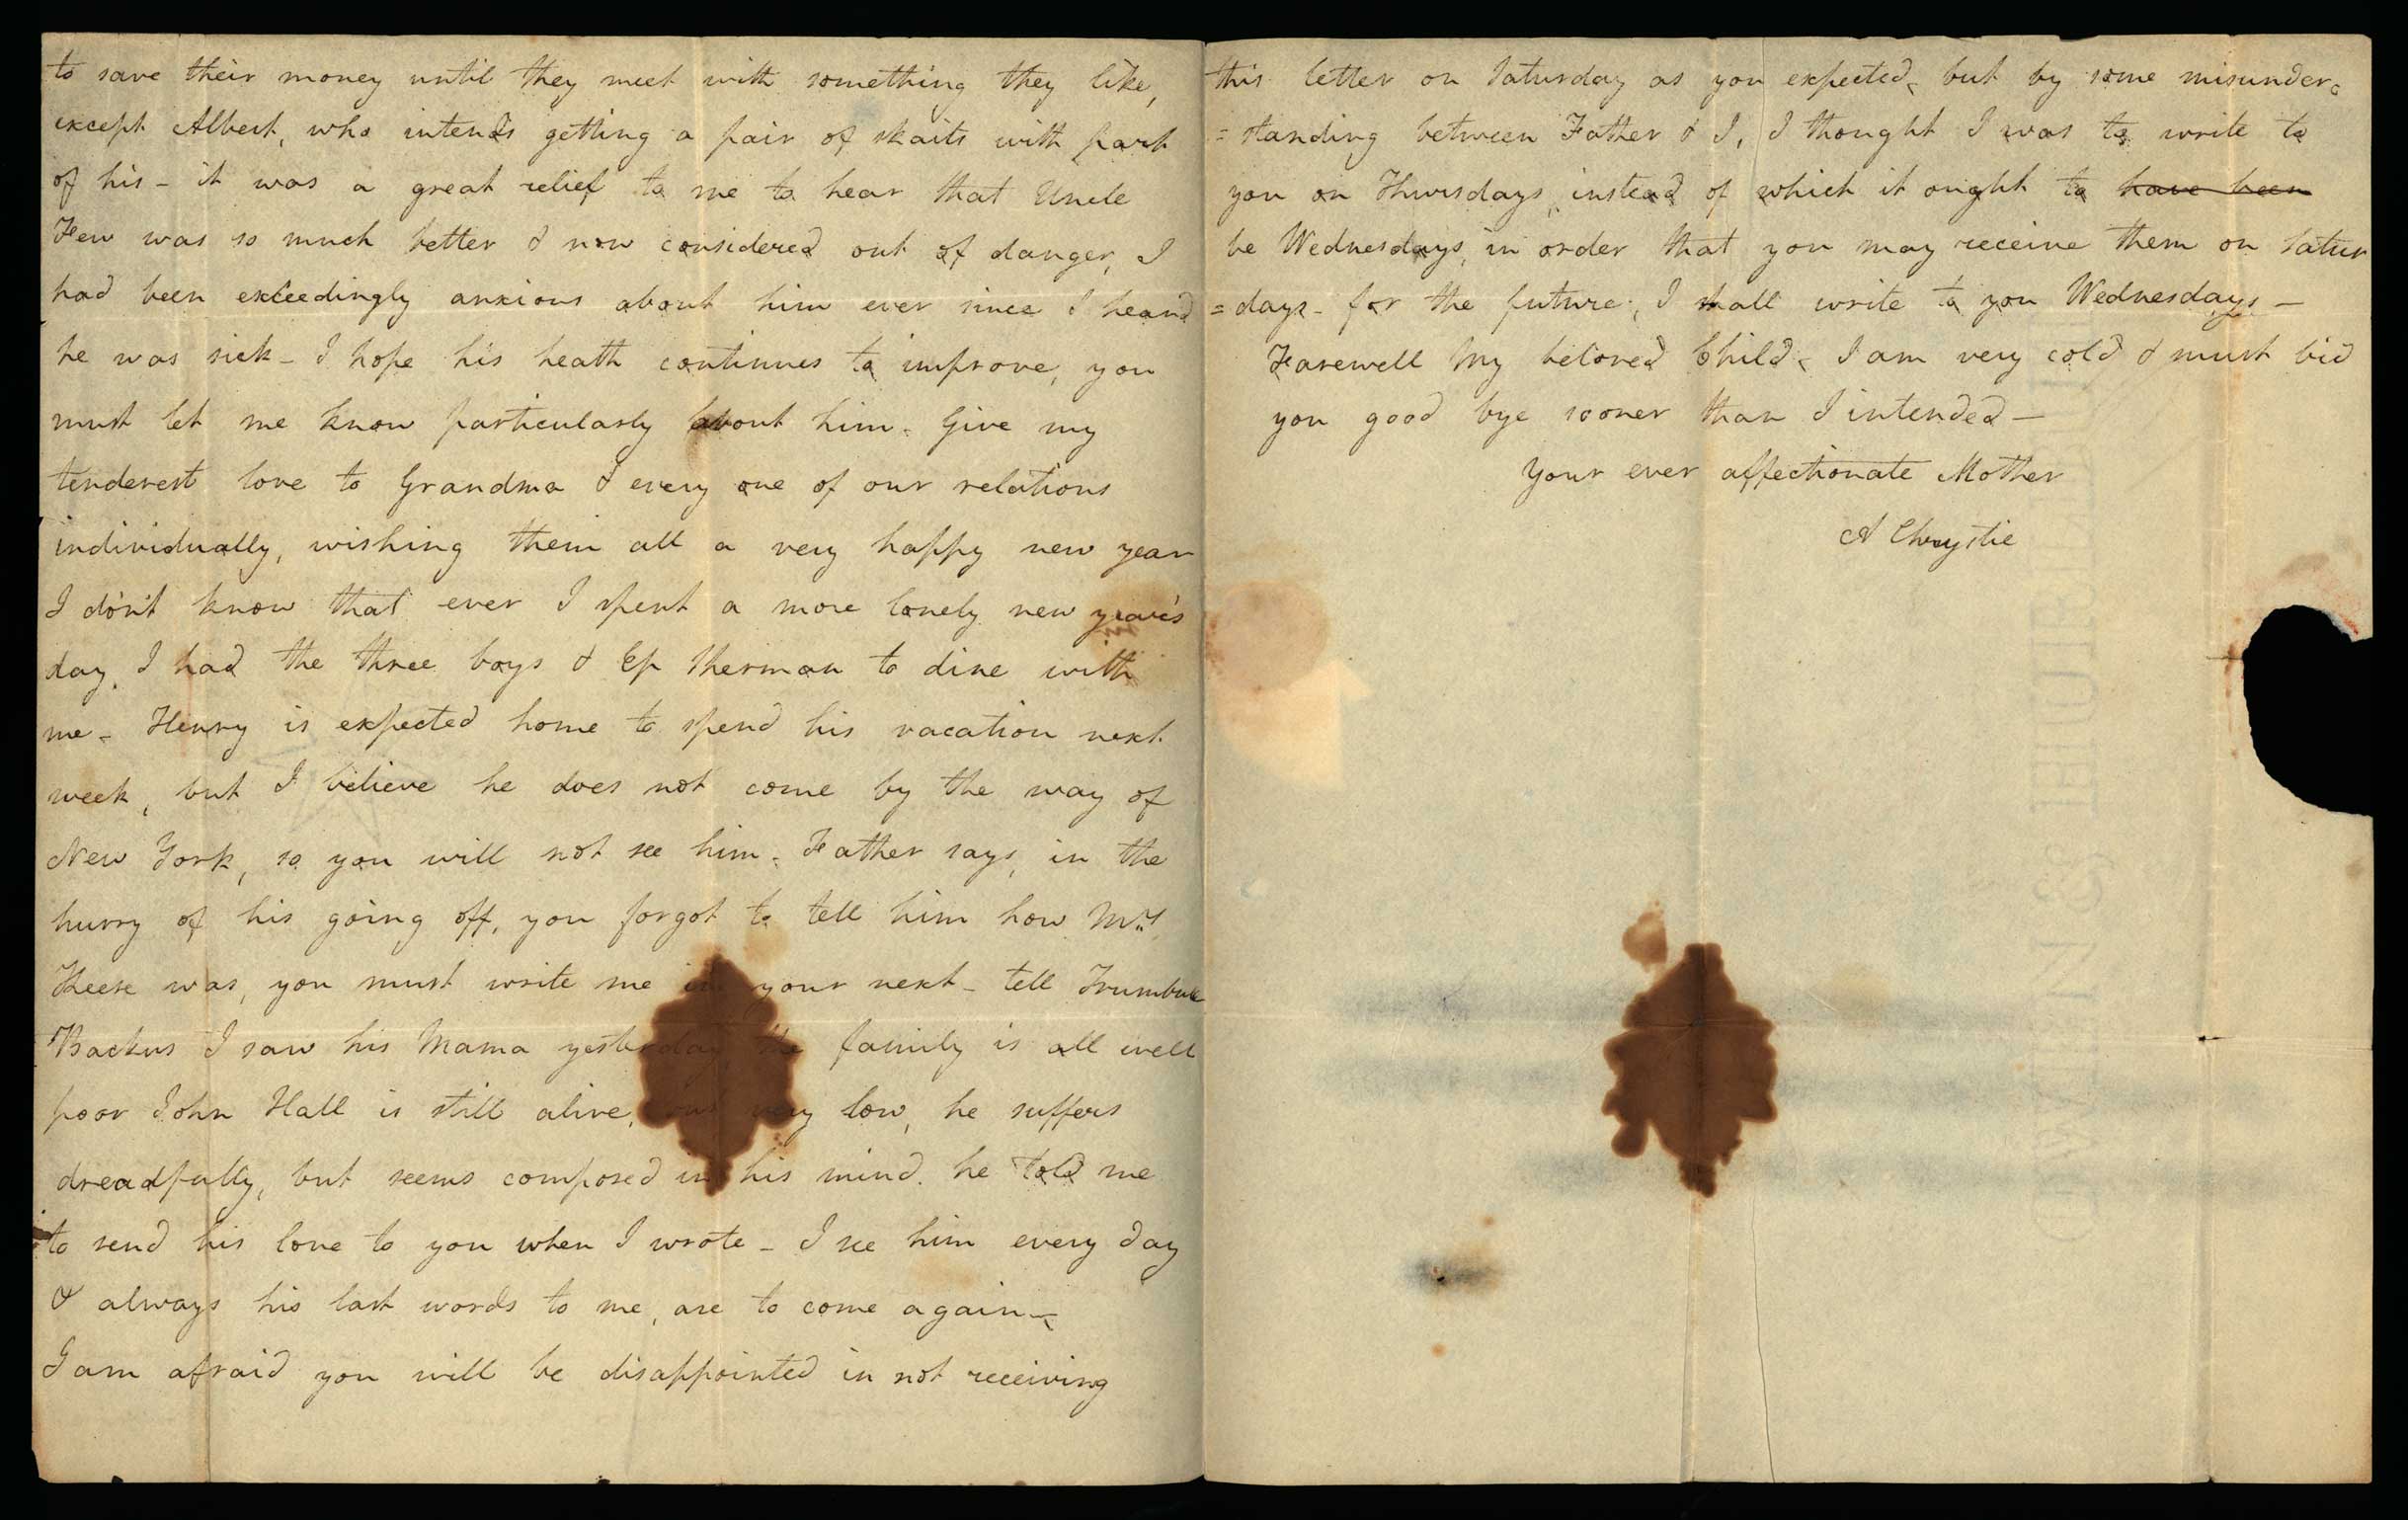 to save their money until they meet with something they like,
except Albert, who intends getting a pair of skaits with part
of his - it was a great relief to me to hear that Uncle
Few was so much better & now considered out of danger, I
had been exceedingly anxious about him ever since I heard
he was sick - I hope his heath continues to improve, you
must let me know particularly about him. Give my
tenderest love to Grandma & every one of our relations
individually, wishing them all a very happy new year
I don't know that ever I spent a more lonely new year's
day. I had the three boys & Ep Sherman to dine with
me - Henry is expected home to spend his vacation next
week, but I believe he does not come by the way of
New York, so you will not see him. Father says, in the
hurry of his going off, you forgot to tell him how Mrs
was, you must write me in your next - tell Trumbull
Backus I saw his Mama yesterday the family is all well
poor John Hall is still alive, but very low, he suffers
dreadfully, but seems composed in his mind. he told me
to send his love to you when I wrote - I see him every day
& always his last words to me, are to come again -
I am afraid you will be disappointed in not receiving
this letter on Saturday as you expected, but by some misunder=
=standing between Father & I, I thought I was to write to
you on Thursdays, instead of which it ought to have been
be Wednesdays, in order that you may receive them on Satur
=days - for the future, I shall write to you Wednesdays -
Farewell My beloved Child, I am very cold & must bid
you good bye sooner than I intended -
Your ever affectionate Mother
A Chrystie